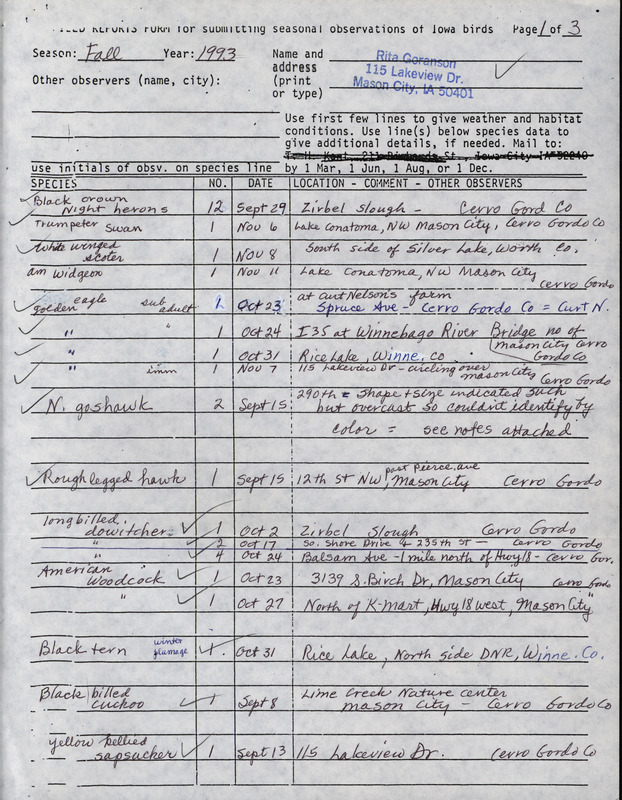 FIELD REPORTS FORM for submitting seasonal observations of Iowa birds Page 1 of 3
Season: Fall Year: 1993 Name and
address
(print
or type)
Rita Goranson
115 Lakeview Dr.
Mason City, IA 50401
Other observers (name, city):
Use first few lines to give weather and habitat
conditions. Use line(s) below species data to
give additional details, if needed. Mail to:
T. H. Kent, 211 Richards St., Iowa City IA 52240
use initials of obsv. on species line by 1 Mar, 1 Jun, 1 Aug, or 1 Dec.
SPECIES NO. DATE LOCATION - COMMENT - OTHER OBSERVERS
Black crown
Night herons 12 Sept 29 Zirbel Slough - Cerro Gord Co
Trumpeter Swan 1 Nov 6 Lake Conatoma, NW Mason City, Cerro Gordo Co
White winged
scoter 1 Nov 8 South side of Silver Lake, Worth Co.
am widgeon 1 Nov 11 Lake Conatoma, NW Mason City
Cerro Gordo
golden eagle sub
adult 1 Oct 23 at Curt Nelson's farm
Spruce Ave - Cerro Gordo Co = Curt N.
" " 1 Oct 24 I35 at Winnebago River Bridge no of
Mason City Cerro
Gordo Co
" 1 Oct 31 Rice Lake, Winne. Co
" imm 1 Nov 7 115 Lakeview Dr - circling over
Mason City Cerro Gordo
N. goshawk 2 Sept 15 290th = Shape + size indicated such
but overcast so couldn't identify by
color = see notes attached
Rough legged hawk 1 Sept 15 12th St NW, past Pierce ave Mason City Cerro Gordo
long billed
dowitcher 1 Oct 2 Zirbel Slough Cerro Gordo
" 2 Oct 17 So. Shore Drive & 235th St - Cerro Gordo
" 4 Oct 24 Balsam Ave - 1 mile north of Hwy 18 - Cerro Gor.
American
Woodcock 1 Oct 23 3139 S. Birch Dr, Mason City Cerro Gordo
" 1 Oct 27 North of K-Mart, Hwy 18 west, Mason City "
Black tern winter
plumage 1. Oct 31 Rice Lake, North side DNR, Winne. Co.
Black billed
cuckoo 1 Sept 8 Lime Creek Nature Center
Mason City - Cerro Gordo Co
yellow bellied
sapsucker 1 Sept 13 115 Lakeview Dr. Cerro Gordo Co